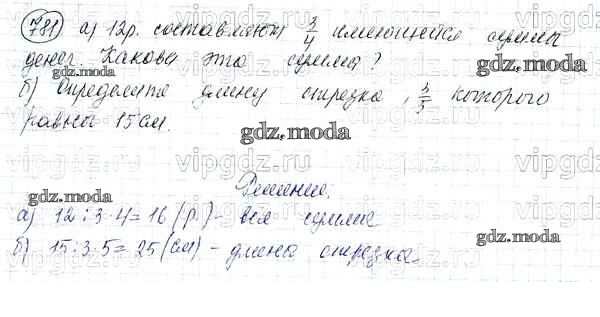 781 а) 12р. составляют 3/4 имеющейся суммы
денег. Какова эта сумма?
б) Определите длину отрезка, 3/5 которого
равны 15 см.
Решение.
а) 12:3·4=16 (р.) - вся сумма
б) 15:3·5=25 (см) - длина отрезка.
gdz.moda
gdz.moda
gdz.moda
gdz.moda
gdz.moda
vipgdz.ru
vipgdz.ru